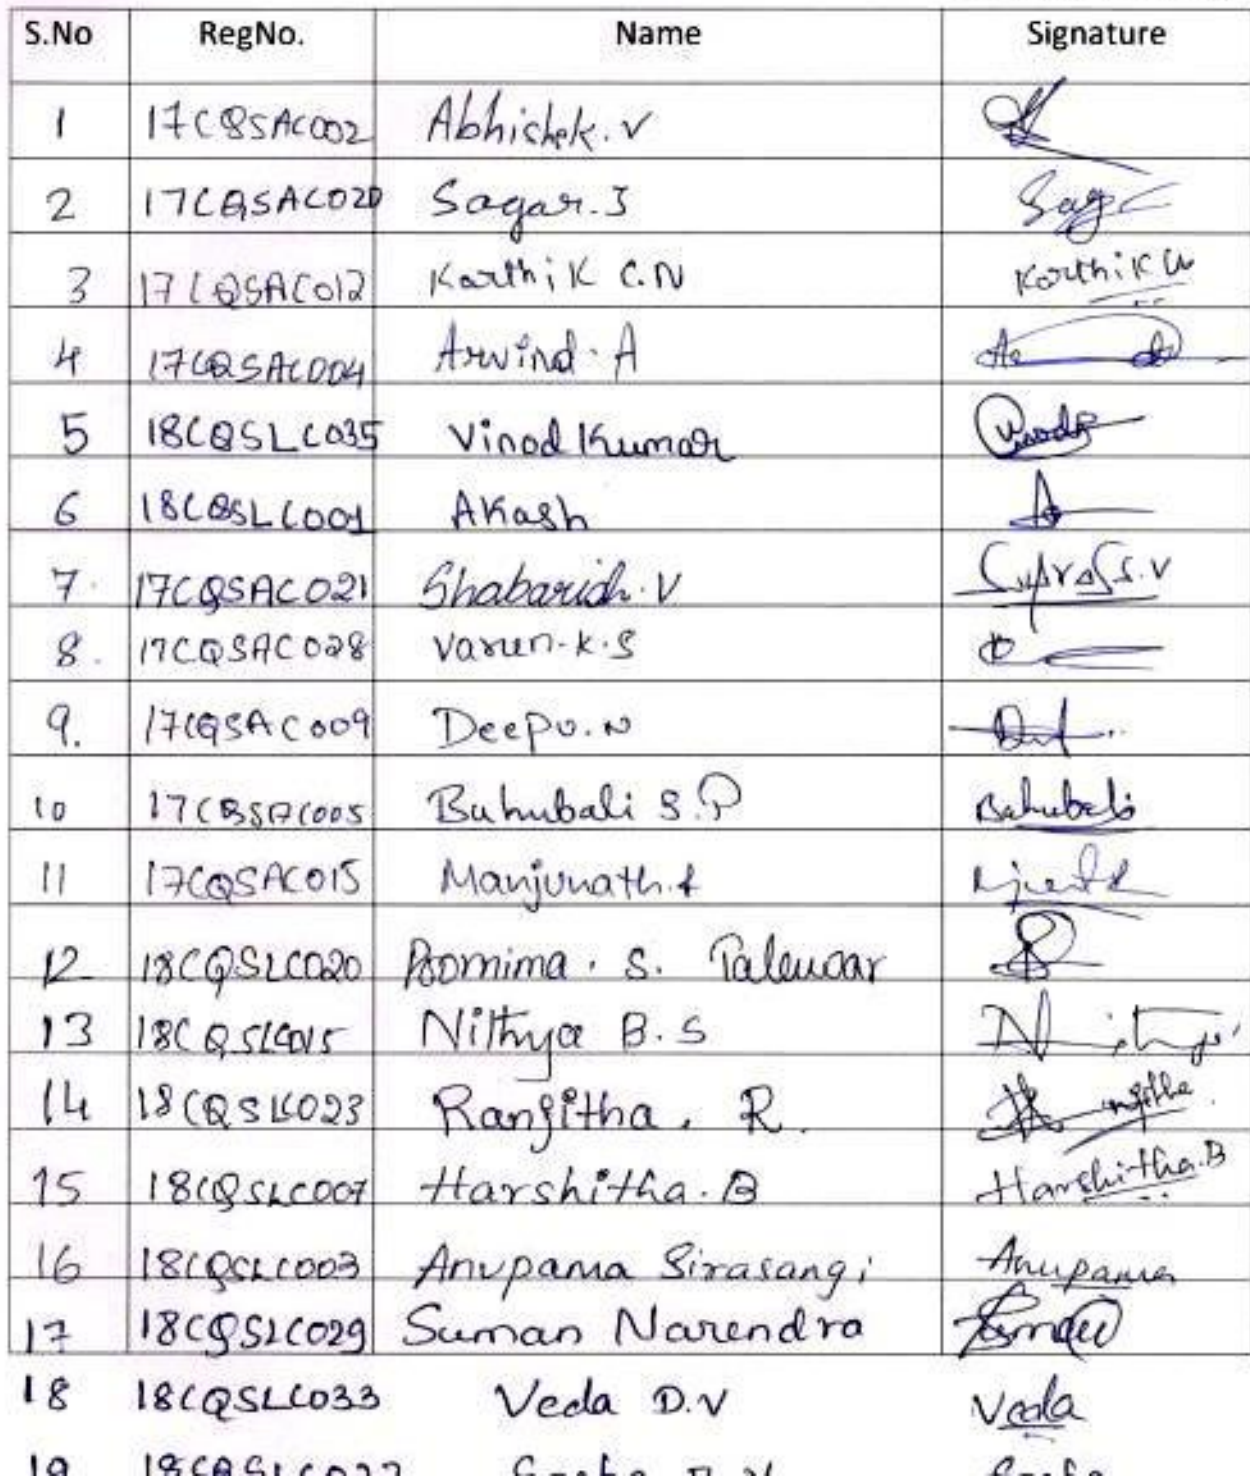 S.No RegNo. Name Signature
1 17CQSAC002 Abhishek. V
2 17CQSAC020 Sagar. J Sag
3 17CQSAC012 Karthik C.N Karthik CN
4 17CQSAC004 Arvind. A
5 18CQSLC035 Vinod Kumar
6 18CQSLC001 Akash
7. 17CQSAC021 Shabarish. V
8. 17CQSAC028 Varun. K. S
9. 17CQSAC009 Deepu. N
10 17CQSAC005 Bahubali S.P Bahubali
11 17CQSAC015 Manjunath.
12 18CQSLC020 Poornima. S. Talewar
13 18CQSLC015 Nithya B. S
14 18CQSLC023 Ranjitha. R.
15 18CQSLC007 Harshitha. B Harshitha.B
16 18CQSLC003 Anupama Sirasangi Anupama
17 18CQSLC029 Suman Narendra Suman
18 18CQSLC033 Veda D.V Veda
19